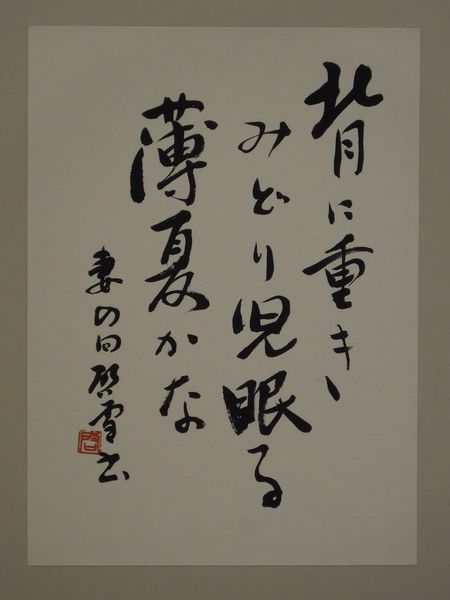 背に重き
みどり児眠る
薄夏かな
妻の句 啓雪書